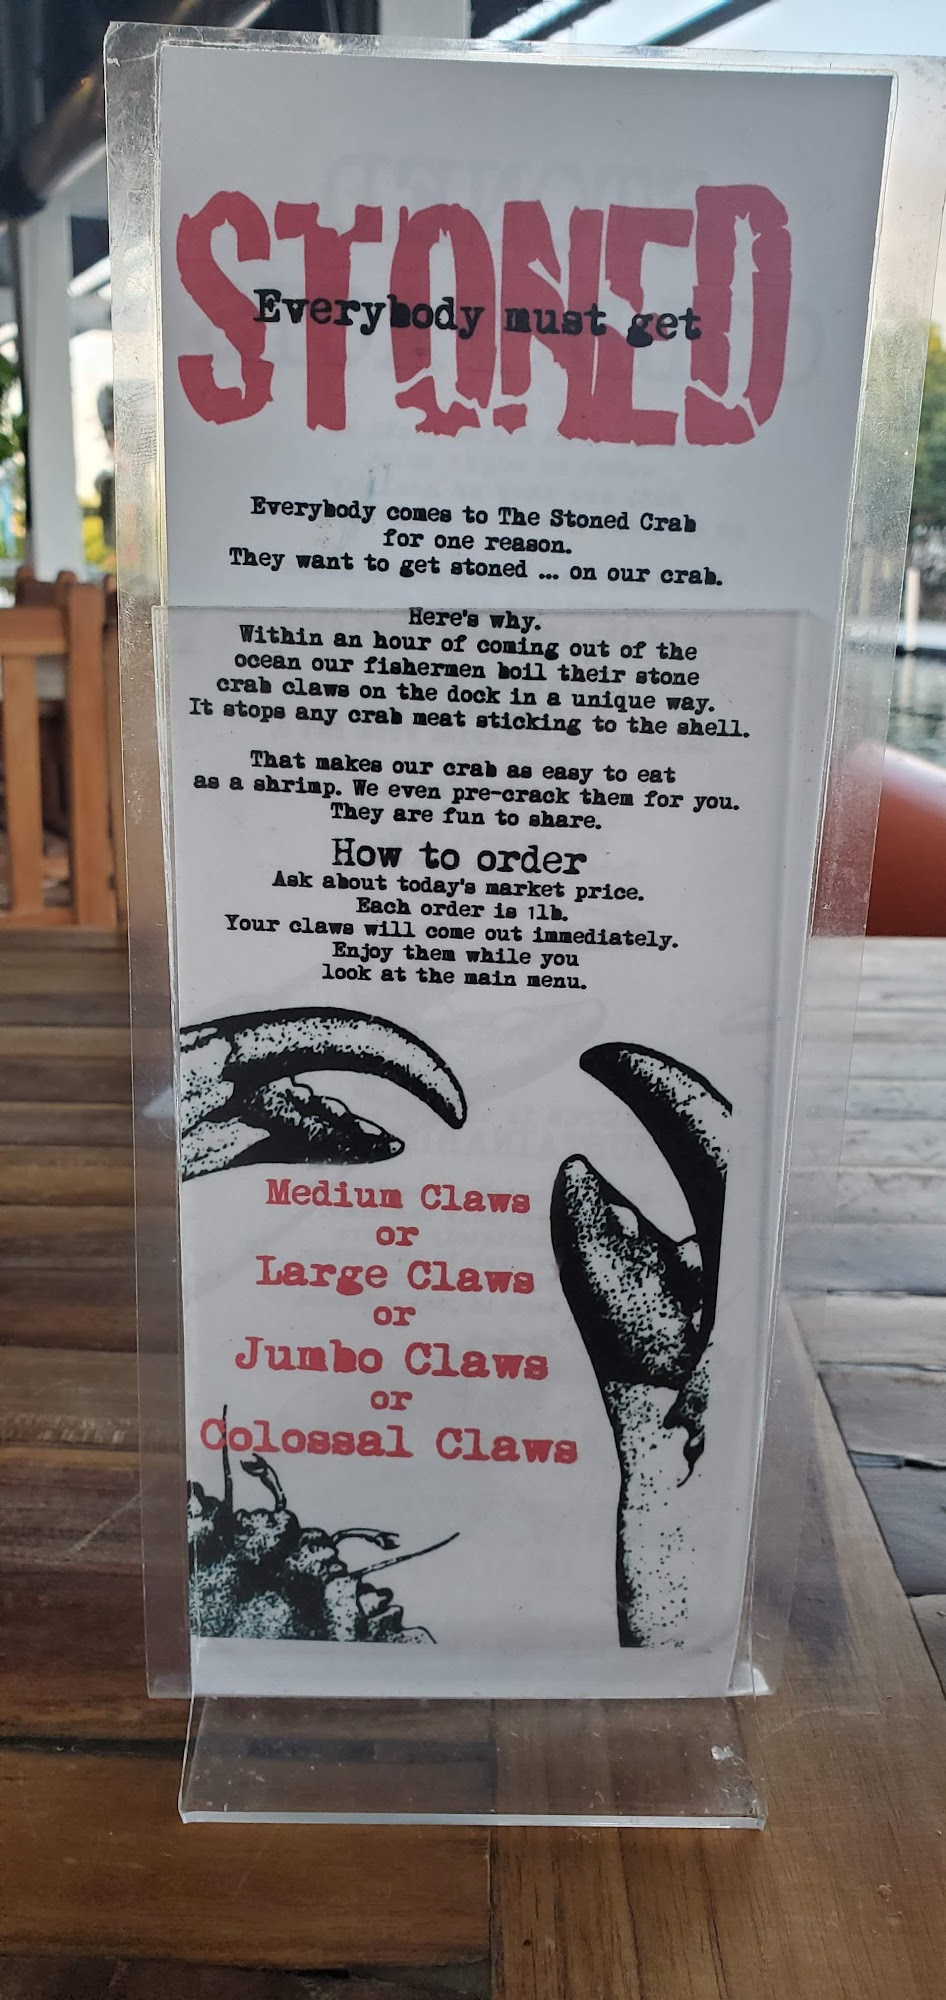 STONED
Everybody must get
Everybody comes to The Stoned Crab
for one reason.
They want to get stoned ... on our crab.
Here's why.
Within an hour of coming out of the
ocean our fishermen boil their stone
crab claws on the dock in a unique way.
It stops any crab meat sticking to the shell.
That makes our crab as easy to eat
as a shrimp. We even pre-crack them for you.
They are fun to share.
How to order
Ask about today's market price.
Each order is 1lb.
Your claws will come out immediately.
Enjoy them while you
look at the main menu.
Medium Claws
or
Large Claws
or
Jumbo Claws
or
Colossal Claws